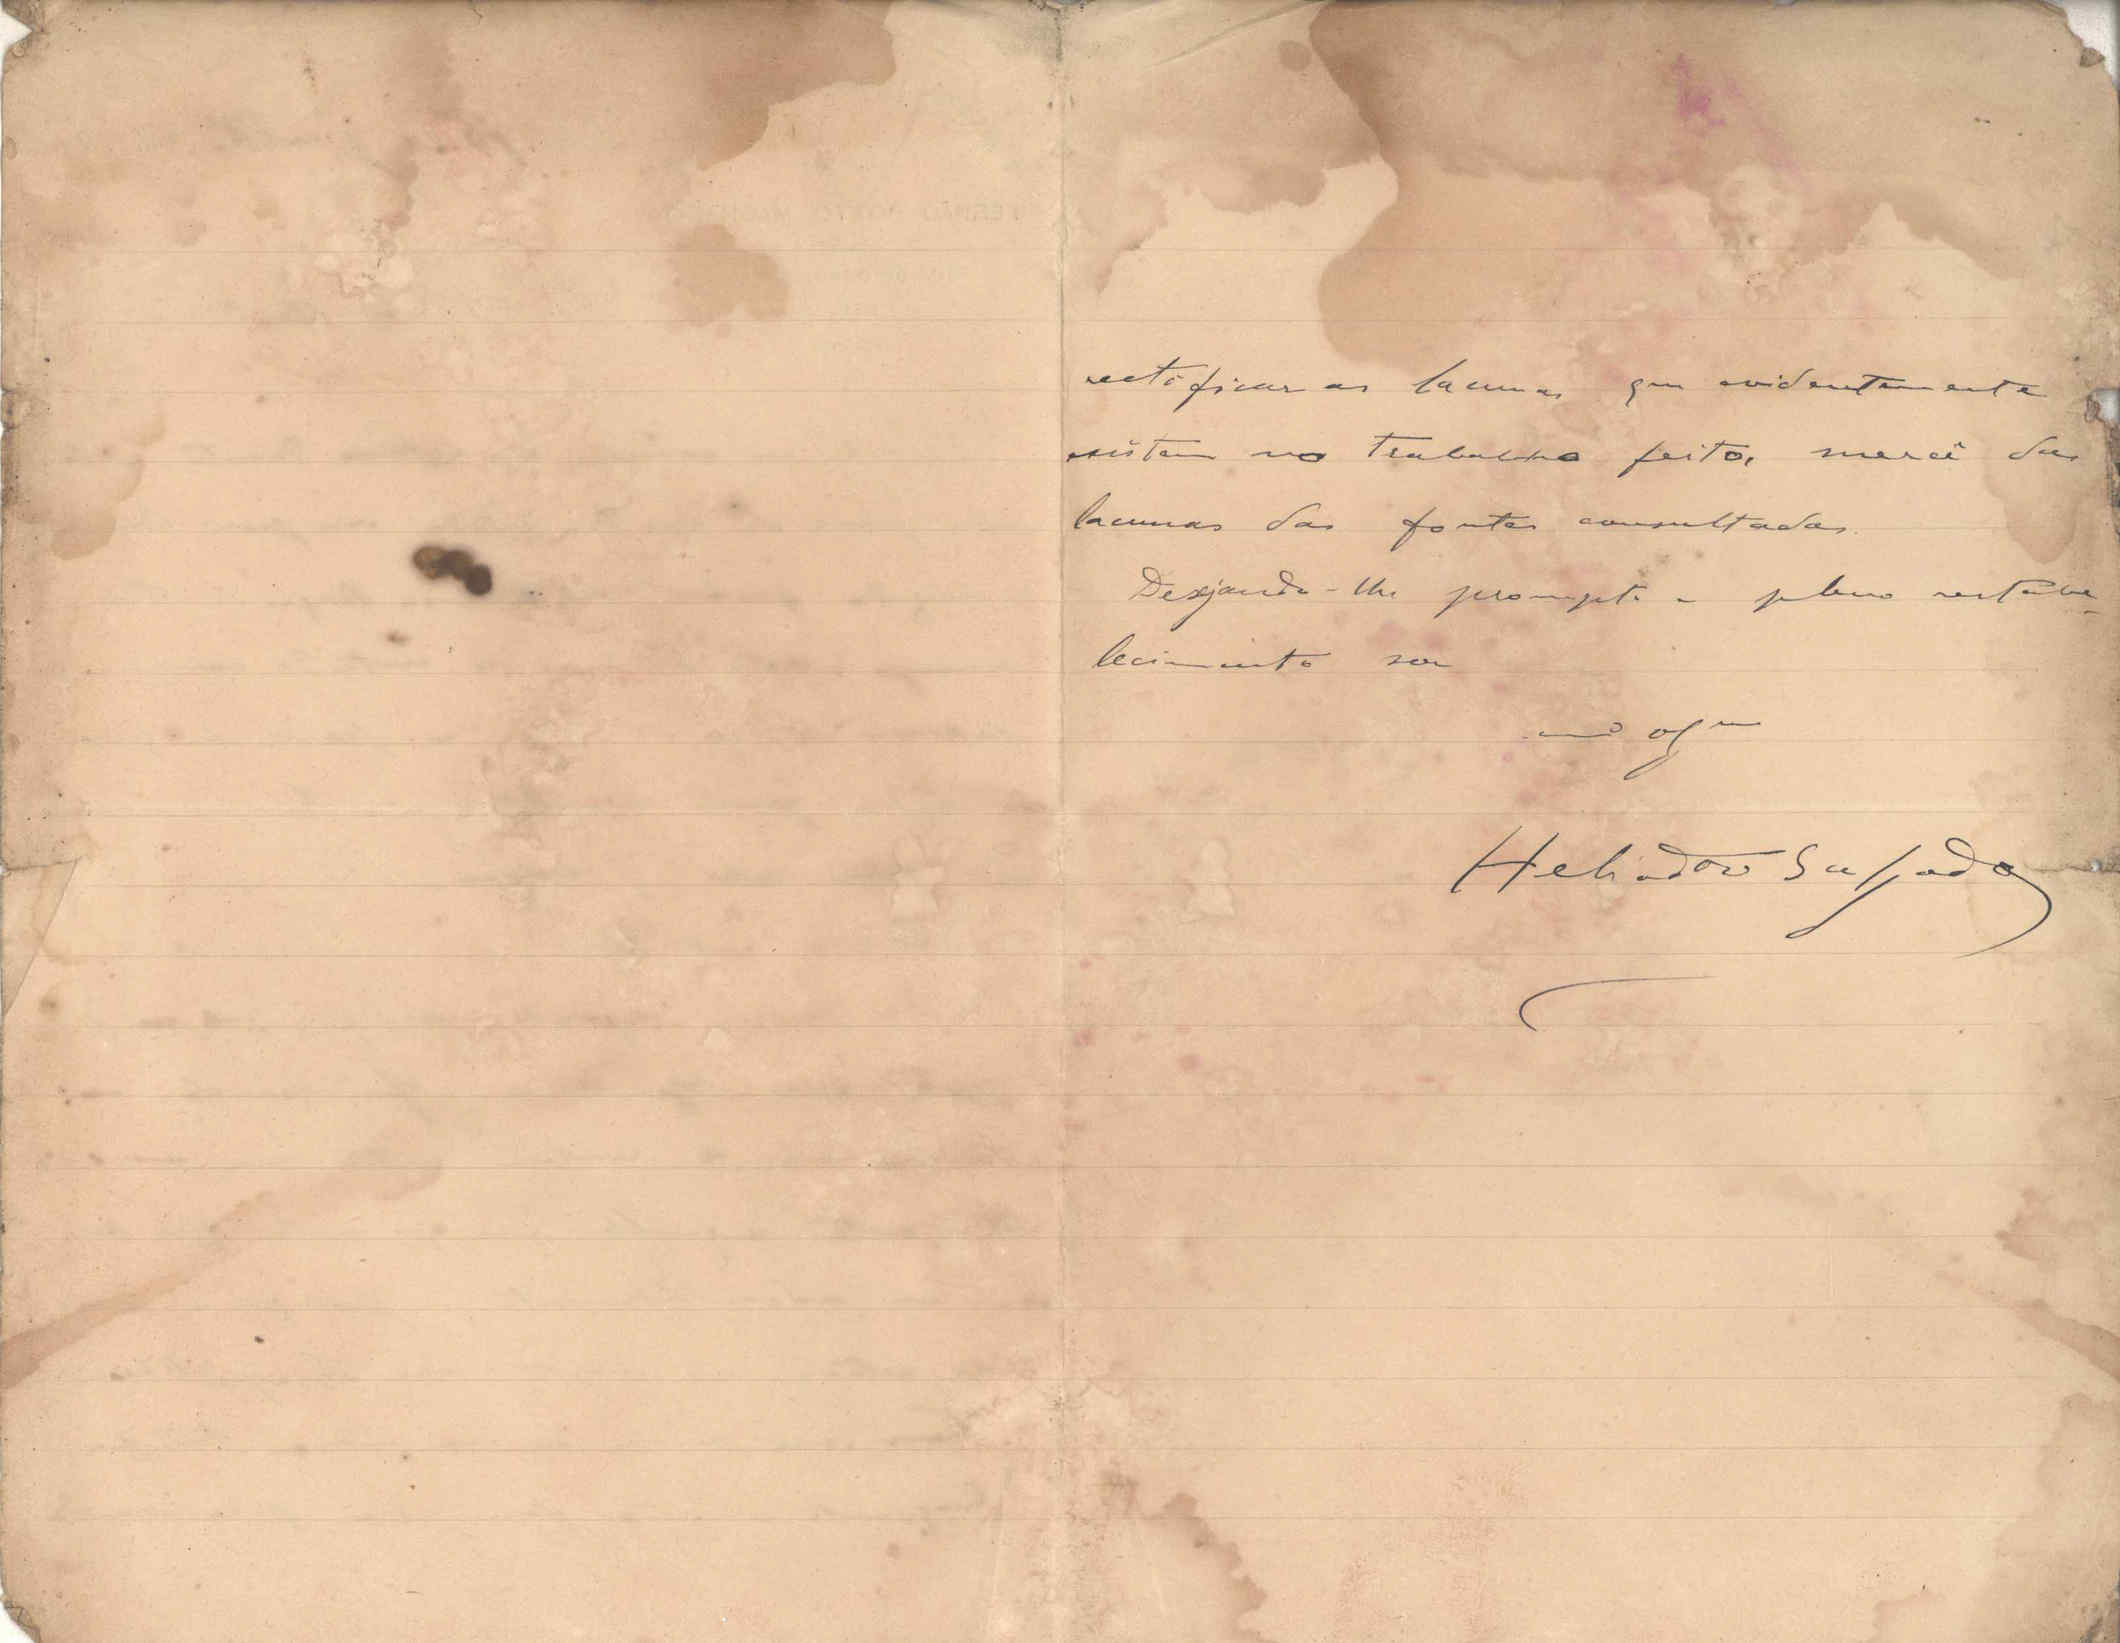 rectificar as lacunas que evidentemente
existem no trabalho feito, mercê das
lacunas das fontes consultadas.
Desejando-lhe prompto e pleno restabe-
lecimento sou
Heliodoro Salgado